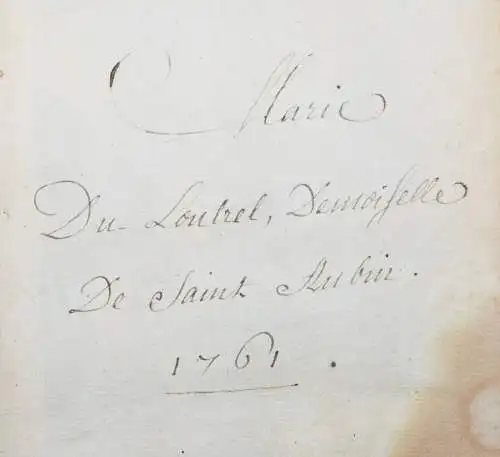 Marie
Du Loutrel, Demoiselle
De Saint Aubin.
1761.